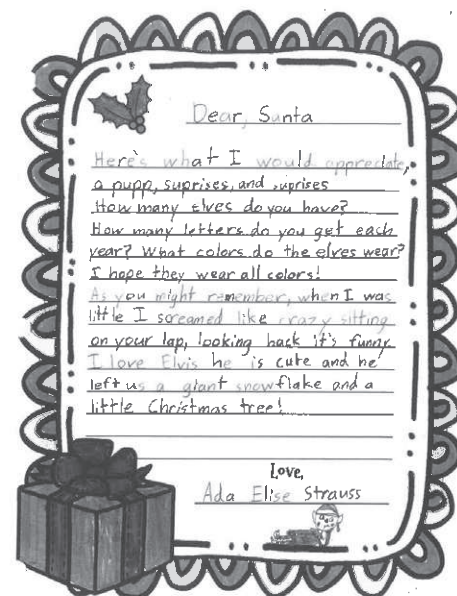 Dear, Santa
Here's what I would appreciate,
a pupp, suprises, and suprises
How many elves do you have?
How many letters do you get each
year? What colors do the elves wear?
I hope they wear all colors!
As you might remember, when I was
little I screamed like crazy sitting
on your lap, looking back it's funny
I love Elvis he is cute and he
left us a giant snowflake and a
little Christmas tree!
Love,
Ada Elise Strauss